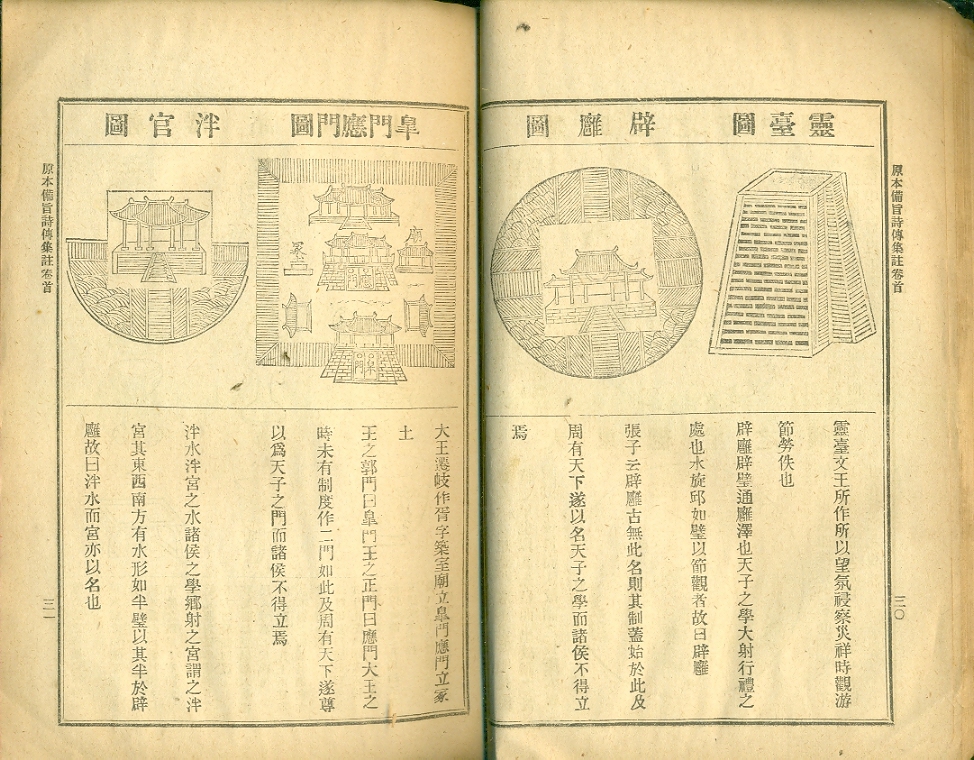 原本備旨詩傳集註卷首
三〇
靈臺圖
辟廱圖
靈臺文王所作所以望氛祲察災祥時觀游
節勞佚也
辟廱辟璧通廱澤也天子之學大射行禮之
處也水旋邱如璧以節觀者故曰辟廱
張子云辟廱古無此名則其制蓋始於此及
周有天下遂以名天子之學而諸侯不得立
焉
皐門應門圖
泮宮圖
皐門
大王遷岐作胥宇築室廟立皐門應門立冢
土
王之郭門曰皐門王之正門曰應門大王之
時未有制度作二門如此及周有天下遂尊
以爲天子之門而諸侯不得立焉
泮水泮宮之水諸侯之學鄕射之宮謂之泮
宮其東西南方有水形如半璧以其半於辟
廱故曰泮水而宮亦以名也
原本備旨詩傳集註卷首
三一